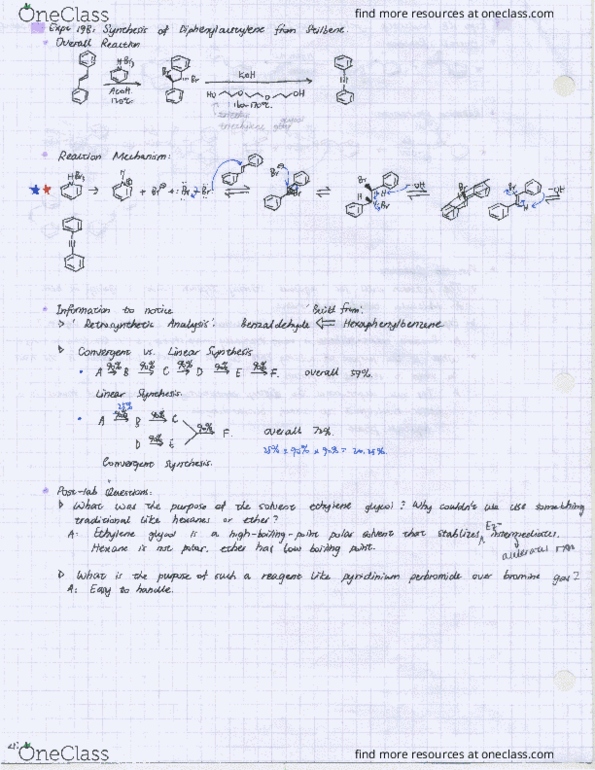 OneClass
find more resources at oneclass.com
Expt 19B: Synthesis of Diphenylacetylene from Stilbene.
Overall Reaction
Br₃
Br
KOH
AcOH
120°C
HO
OH
Reaction Mechanism:
Br₃
+ Br
Br
Br
-OH
Br
-OH
Information to notice
'Built from'
> 'Retrosynthetic Analysis': Benzaldehyde ⇐ Hexaphenylbenzene
Convergent vs. Linear Synthesis
A 90%→ B 90%→ C 90%→ D 90%→ E 90%→ F. overall 59%.
Linear Synthesis.
25%
A 90%→ B 90%→ C
90%→ F. overall 72%.
D 90%→ E
25% × 90% × 90% = 20.25%
Convergent Synthesis.
Post-lab Questions:
What was the purpose of the solvent ethylene glycol? Why couldn't we use something
traditional like hexanes or ether?
A: Ethylene glycol is a high-boiling-point polar solvent that stablizes E2 intermediates.
Hexane is not polar. ether has low boiling point.
accelerates rxn
What is the purpose of such a reagent like pyridinium perbromide over bromine gas?
A: Easy to handle.
OneClass
find more resources at oneclass.com